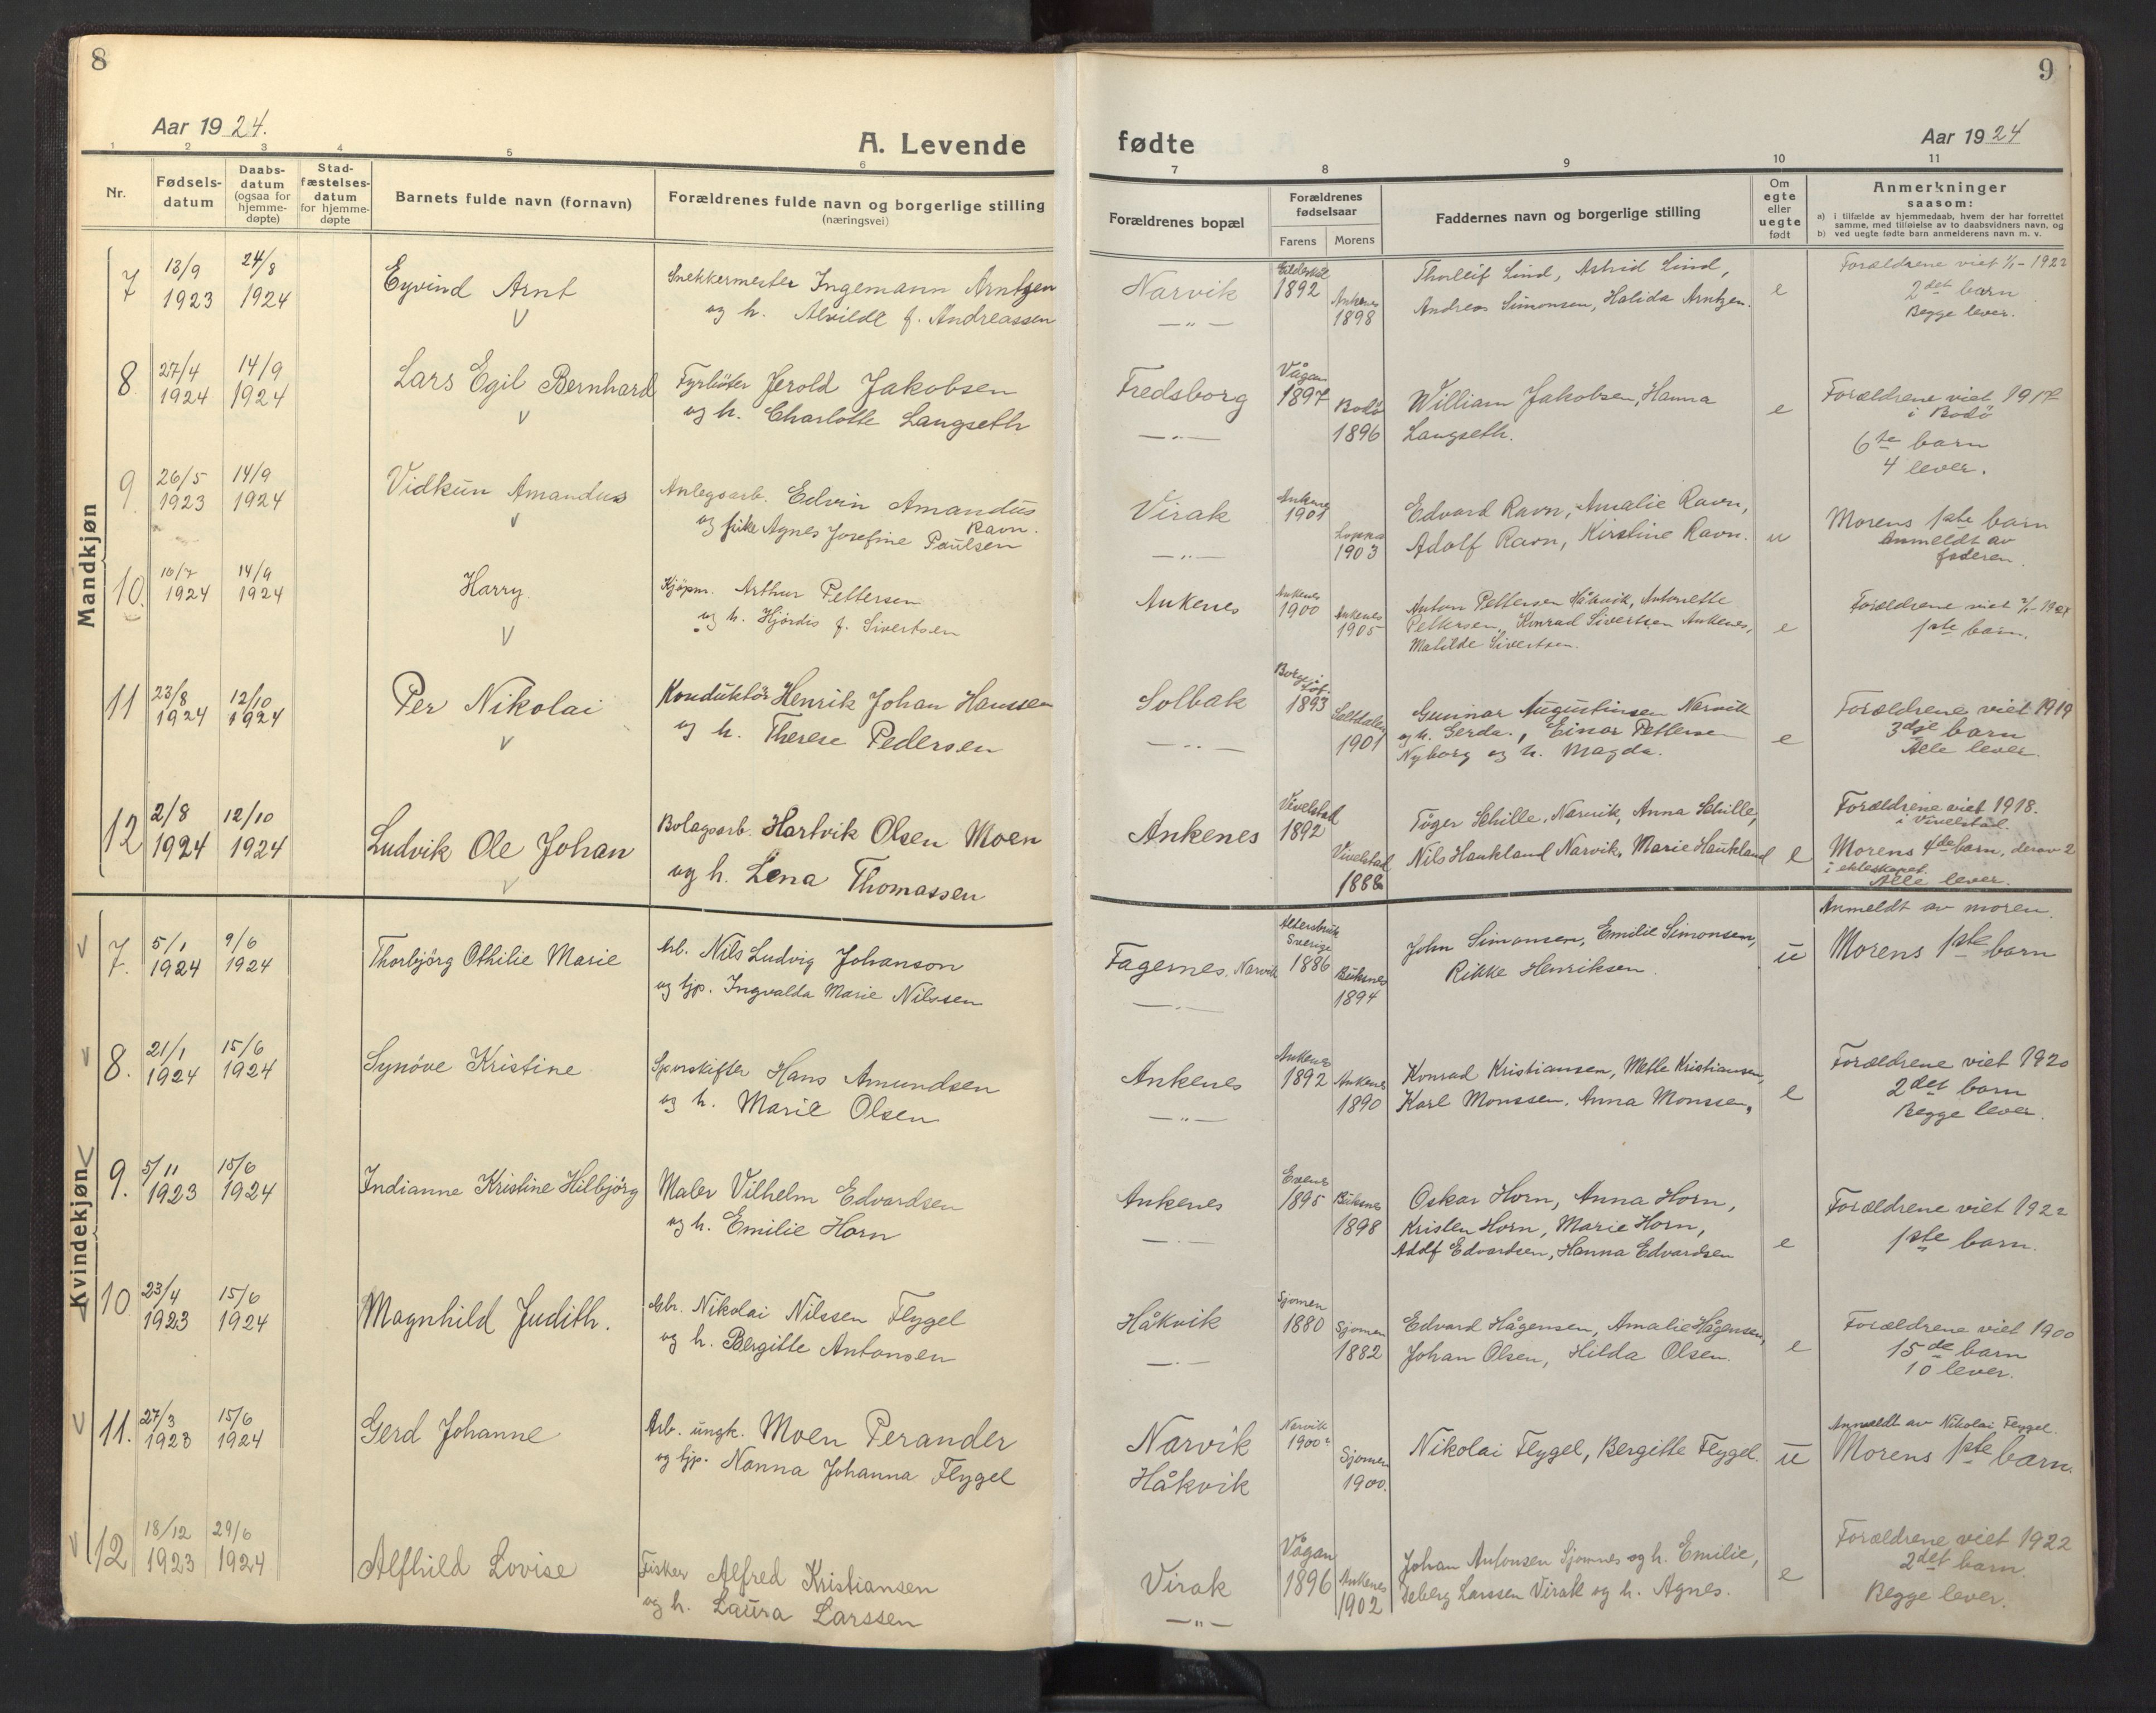 8
Aar 1924.
A. Levende
1 2 3 4 5 6
Nr.
Fødsels-
datum
Daabs-
datum
(ogsaa for
hjemme-
døpte)
Stad-
fæstelses-
datum
for hjemme-
døpte
Barnets fulde navn (fornavn)
Forældrenes fulde navn og borgerlige stilling
(næringsvei)
Mandkjøn
7 13/9 24/8
1923 1924
Eyvind Arnt
Snekkermester Ingemann Arntzen
og h. Alvilde f. Andreassen
8 27/4 14/9
1924 1924
Lars Egil Bernhard
Fyrbøter Jerold Jakobsen
og h. Charlotte Langseth
9 26/5 14/9
1923 1924
Vidkun Amandus
Anlegsarb. Edvin Amandus
Ravn.
og pike Agnes Josefine Paulsen
10. 10/7 14/9
1924 1924
Harry
Kjöpm. Arthur Pettersen
og h. Hjördis f. Sivertsen
11 23/8 12/10
1924 1924
Per Nikolai
Konduktör Henrik Johan Hanssen
og h. Therese Pedersen
12 2/8 12/10
1924 1924
Ludvik Ole Johan
Bolagsarb. Hartvik Olsen Moen
og h. Lena Thomassen
Kvindekjøn
7. 5/1 9/6
1924 1924
Thorbjörg Othilie Marie
Arb. Nils Ludvig Johanson
og tjp. Ingvalda Marie Nilssen
8. 21/1 15/6
1924 1924
Synöve Kristine
Sporskifter Hans Amundsen
og h. Marie Olsen
9. 5/11 15/6
1923 1924
Indianne Kristine Hilbjörg
Maler Vilhelm Edvardsen
og h. Emilie Horn
10 23/4 15/6
1923 1924
Magnhild Judith.
Gbr. Nikolai Nilssen Flygel
og h. Bergitte Antonsen
11. 27/3 15/6
1923 1924
Gerd Johanne
Arb. ungk. Moen Perander
og tjp. Nanna Johanna Flygel
12 18/12 29/6
1923 1924
Alfhild Lovise
Fisker Alfred Kristiansen
og h. Laura Larssen
9
fødte
Aar 1924
7 8 9 10 11
Forældrenes bopæl
Forældrenes
fødselsaar
Farens Morens
Faddernes navn og borgerlige stilling
Om
egte
eller
uegte
født
Anmerkninger
saasom:
a) i tilfælde av hjemmedaab, hvem der har forrettet
samme, med tilføielse av to daabsvidners navn, og
b) ved uegte fødte barn anmelderens navn m. v.
Narvik
—"—
Gildeskål
1892
Ankenes
1898
Thorleif Lind, Astrid Lind,
Andreas Simonsen, Halida Arntzen.
e
Forældrene viet 1/1-1922
2det barn
Begge lever.
Fredsborg
—"—
Vågan
1897
Bodö
1896
William Jakobsen, Hanna
Langseth.
e
Forældrene viet 1917
i Bodö
6te barn
4 lever.
Virak
—"—
Ankenes
1901
Loppa
1903
Edvard Ravn, Amalie Ravn,
Adolf Ravn, Kirstine Ravn.
u
Morens 1ste barn
Anmeldt av
faderen.
Ankenes
Ankenes
1900
Ankenes
1905
Anton Pettersen Håkvik, Antonette
Pettersen, Konrad Sivertsen Ankenes,
Matilde Sivertsen.
e
Forældrene viet
1ste barn.
Solbak
—"—
Borge i
Lof.
1893
Saltdalen
1901
Gunnar Augustinsen Narvik
og h. Gerda., Einar Pettersen
Nyborg og h. Magda.
e
Forældrene viet 1919
3dje barn
Alle lever.
Ankenes
Vivelstad
1892
Vivelstad
1888
Töger Schille, Narvik, Anna Schille,
Nils Haukland Narvik, Marie Haukland
e
Forældrene viet 1918.
i Vivelstad.
Morens 4de barn, derav 2
i ekteskapet.
Alle lever.
Fagernes, Narvik
—"—
Sverige
1886
Buksnes
1894
John Simonsen, Emilie Simonsen,
Rikke Henriksen.
u
Anmeldt av moren.
Morens 1ste barn
Ankenes
—"—
Ankenes
1892
Ankenes
1890
Konrad Kristiansen, Mette Kristiansen,
Karl Monssen, Anna Monssen,
e
Forældrene viet 1920
2det barn
Begge lever.
Ankenes
—"—
Evenes
1895
Buksnes
1898
Oskar Horn, Anna Horn,
Kristen Horn, Marie Horn,
Adolf Edvardsen, Hanna Edvardsen
e
Forældrene viet 1922
1ste barn.
Håkvik
—"—
Sjomen
1880
Sjomen
1882
Edvard Hågensen, Amalie Hågensen,
Johan Olsen, Hilda Olsen.
e
Forældrene viet 1900
15de barn
10 lever.
Narvik
Håkvik
Narvik
1900
Sjomen
1900.
Nikolai Flygel, Bergitte Flygel.
u
Anmeldt av Nikolai Flygel.
Morens 1ste barn.
Virak
—"—
Vågan
1896
Ankenes
1902
Johan Antonsen Sjomnes og h. Emilie,
Larssen Virak og h. Agnes.
e
Forældrene viet 1922
2det barn.
Begge lever.